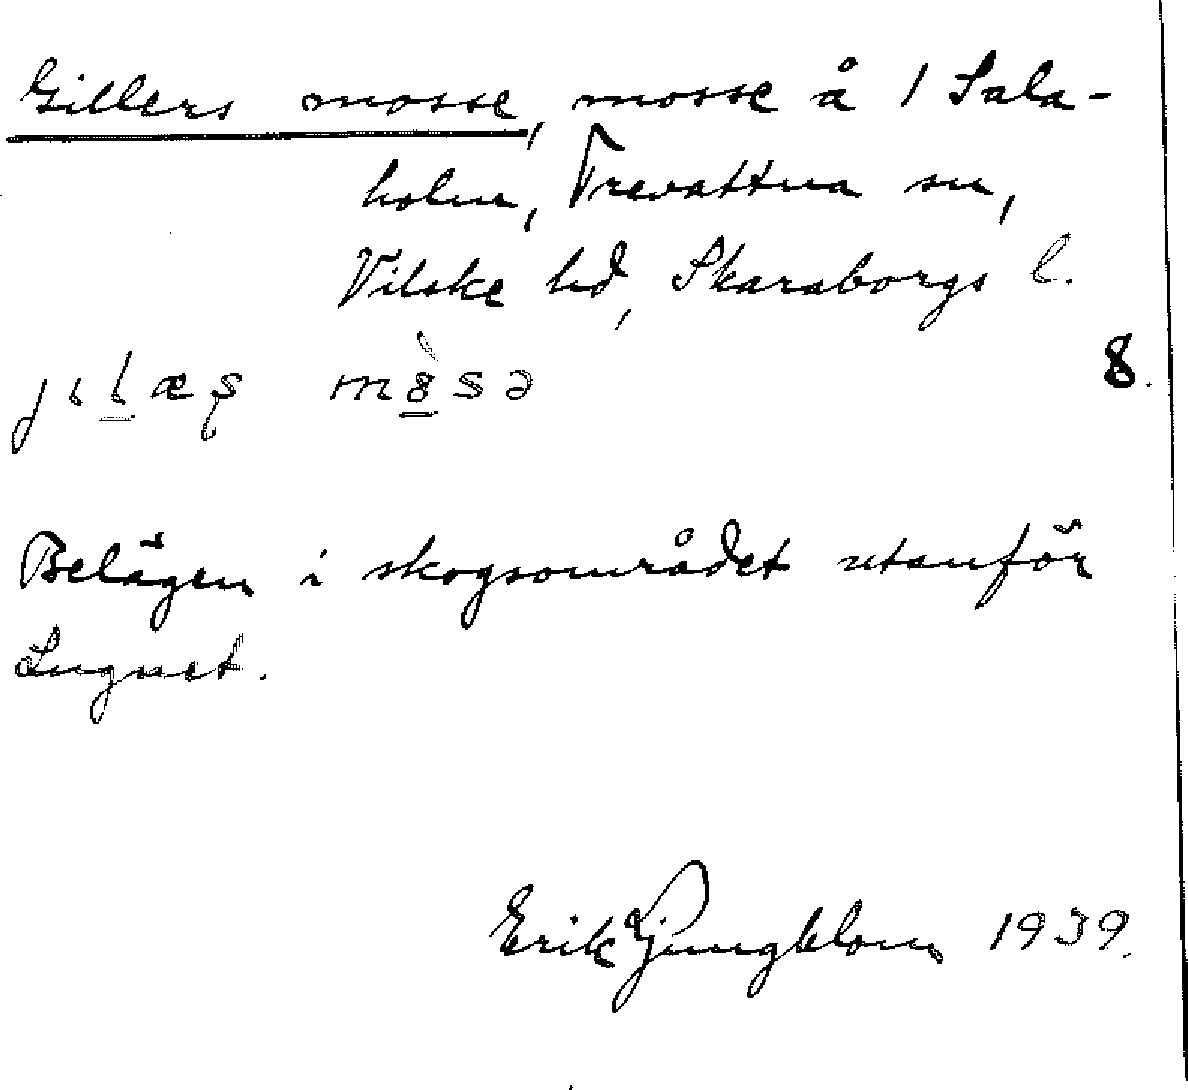 Gillers mosse, mosse å 1 Sala-
holm, Trevattna sn,
Vilske hd, Skaraborgs l.
8.
Belägen i skogsområdet utanför
Lugnet.
Erik Ljungblom 1939.